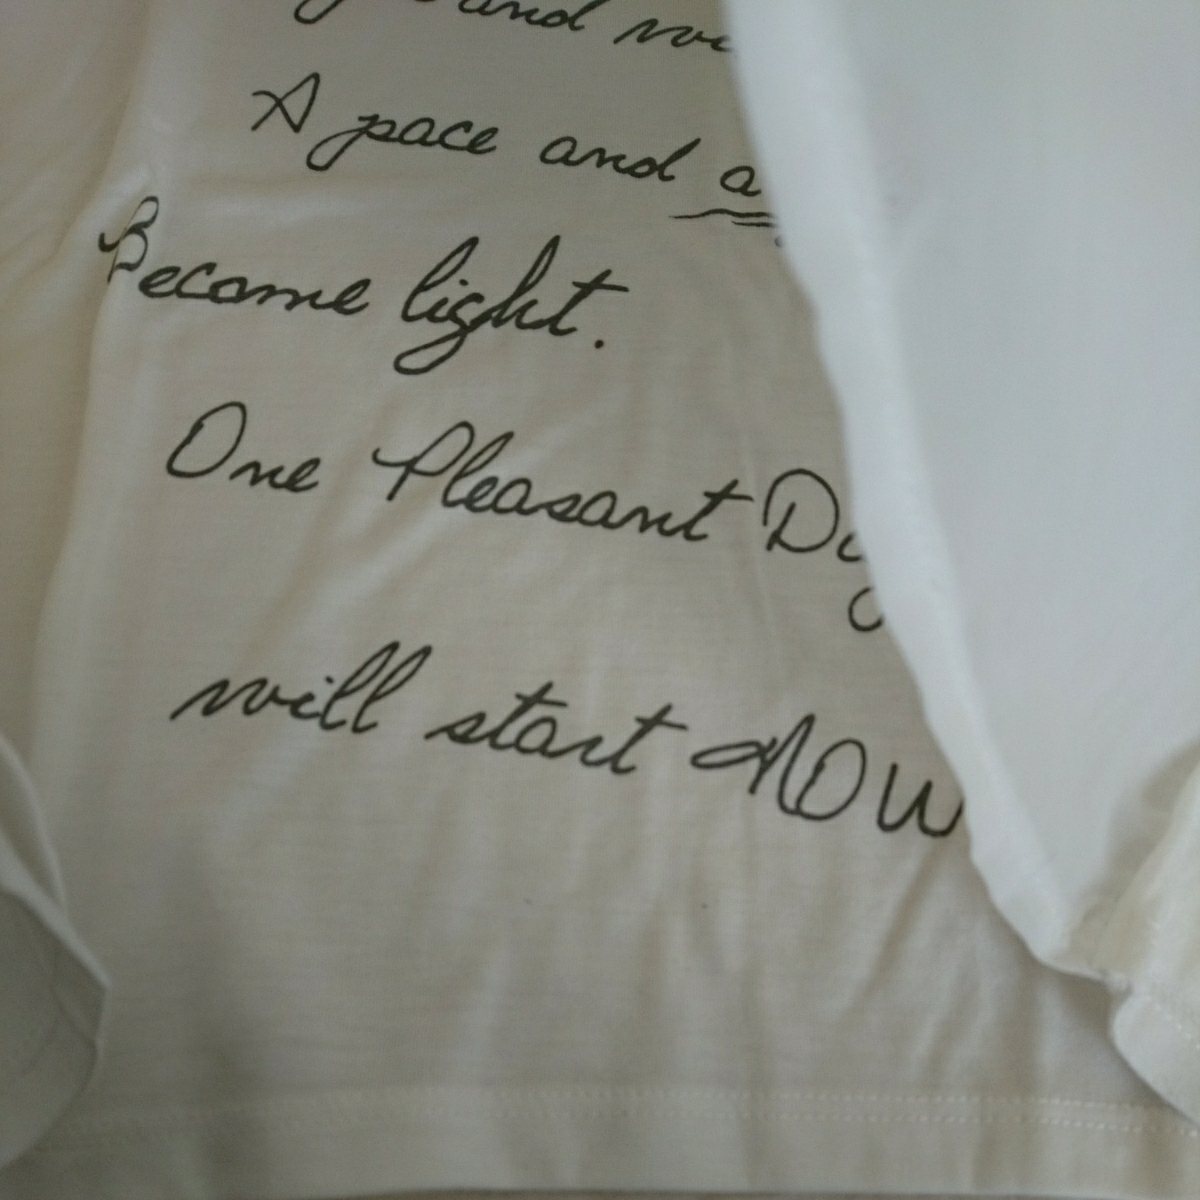 and
A pace and a
Become light.
One Pleasant
will start NOW